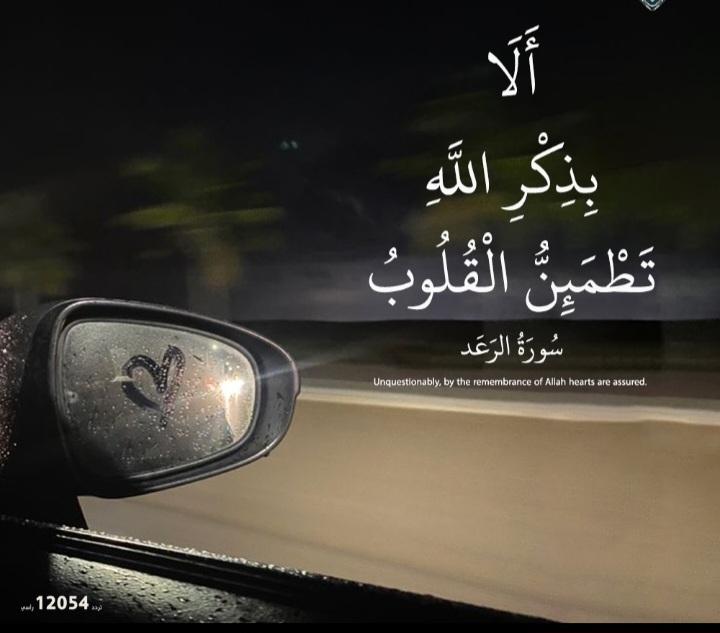 أَلَا
بِذِكْرِ اللَّهِ
تَطْمَئِنُّ الْقُلُوبُ
سُورَةُ الرَعَد
Unquestionably, by the remembrance of Allah hearts are assured.
تردد 12054 رأسي